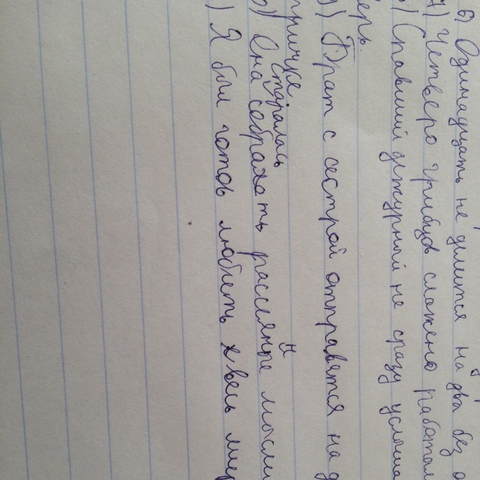 6) Одинадцать не делится на два без о
7) Четверо гребцов слажено работал
) Спавший дежурный не сразу услыша
ерь
9) Брат с сестрой отправятся на д
тричке
старалась н
) Она собрать рассеяные мысли
) Я был готов любить весь мир